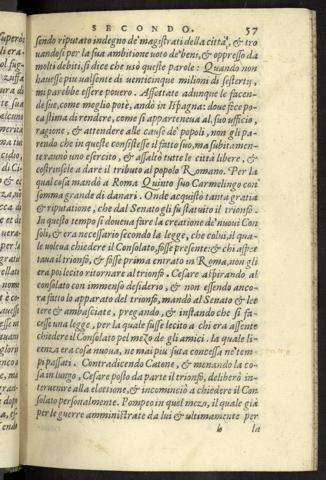 SECONDO. 57
sendo riputato indegno de' magistrati della città, & tro
vandosi per la sua ambitione voto de' beni, & oppresso da
molti debiti, si dice che usò queste parole: Quando non
havesse piu valsente di venticinque milioni di sestertij,
mi parebbe essere povero. Assottate adunque le facen-
de sue, come meglio potè, andò in Ispagna: dove fece po-
ca stima di rendere, come si apparteneva al suo ufficio,
ragione, & attendere alle cause de' popoli, non gli pa-
rendo che in queste consistesse il fatto suo, ma subitamen-
te raunò uno esercito, & assaltò tutte le città libere, &
costrinsele a dare il tributo al popolo Romano. Per la
qual cosa mandò a Roma Quinto suo Carmelingo con
somma grande di danari. Onde acquistò tanta gratia
& riputatione, che dal Senato gli fu statuito il trionfo.
In questo tempo si doveva fare la creatione de' nuovi Con
soli, & era necessario secondo la legge, che colui, il qua-
le voleva chiedere il Consolato, fosse presente: & chi aspet
tava il trionfo, & fosse prima entrato in Roma, non gli
era poi lecito ritornare al trionfo. Cesare aspirando al
consolato con immenso desiderio, & non essendo anco-
ra fatto lo apparato del trionfo, mandò al Senato & let
tere & ambasciate, pregando, & instando che si fa-
cesse una legge, per la quale fusse lecito a chi era assente
chiedere il Consolato pel mezo de gli amici. la quale li-
cenza era cosa nuova, ne mai piu suta concessa ne' tem-
pi passati. Contradicendo Catone, & menando la co-
sa in lungo, Cesare posto da parte il trionfo, deliberò in-
tervenire alla elettione, & incominciò a chiedere il Con
solato personalmente. Pompeo in quel mezo, il quale già
per le guerre amministrate da lui & ultimamente per
h la